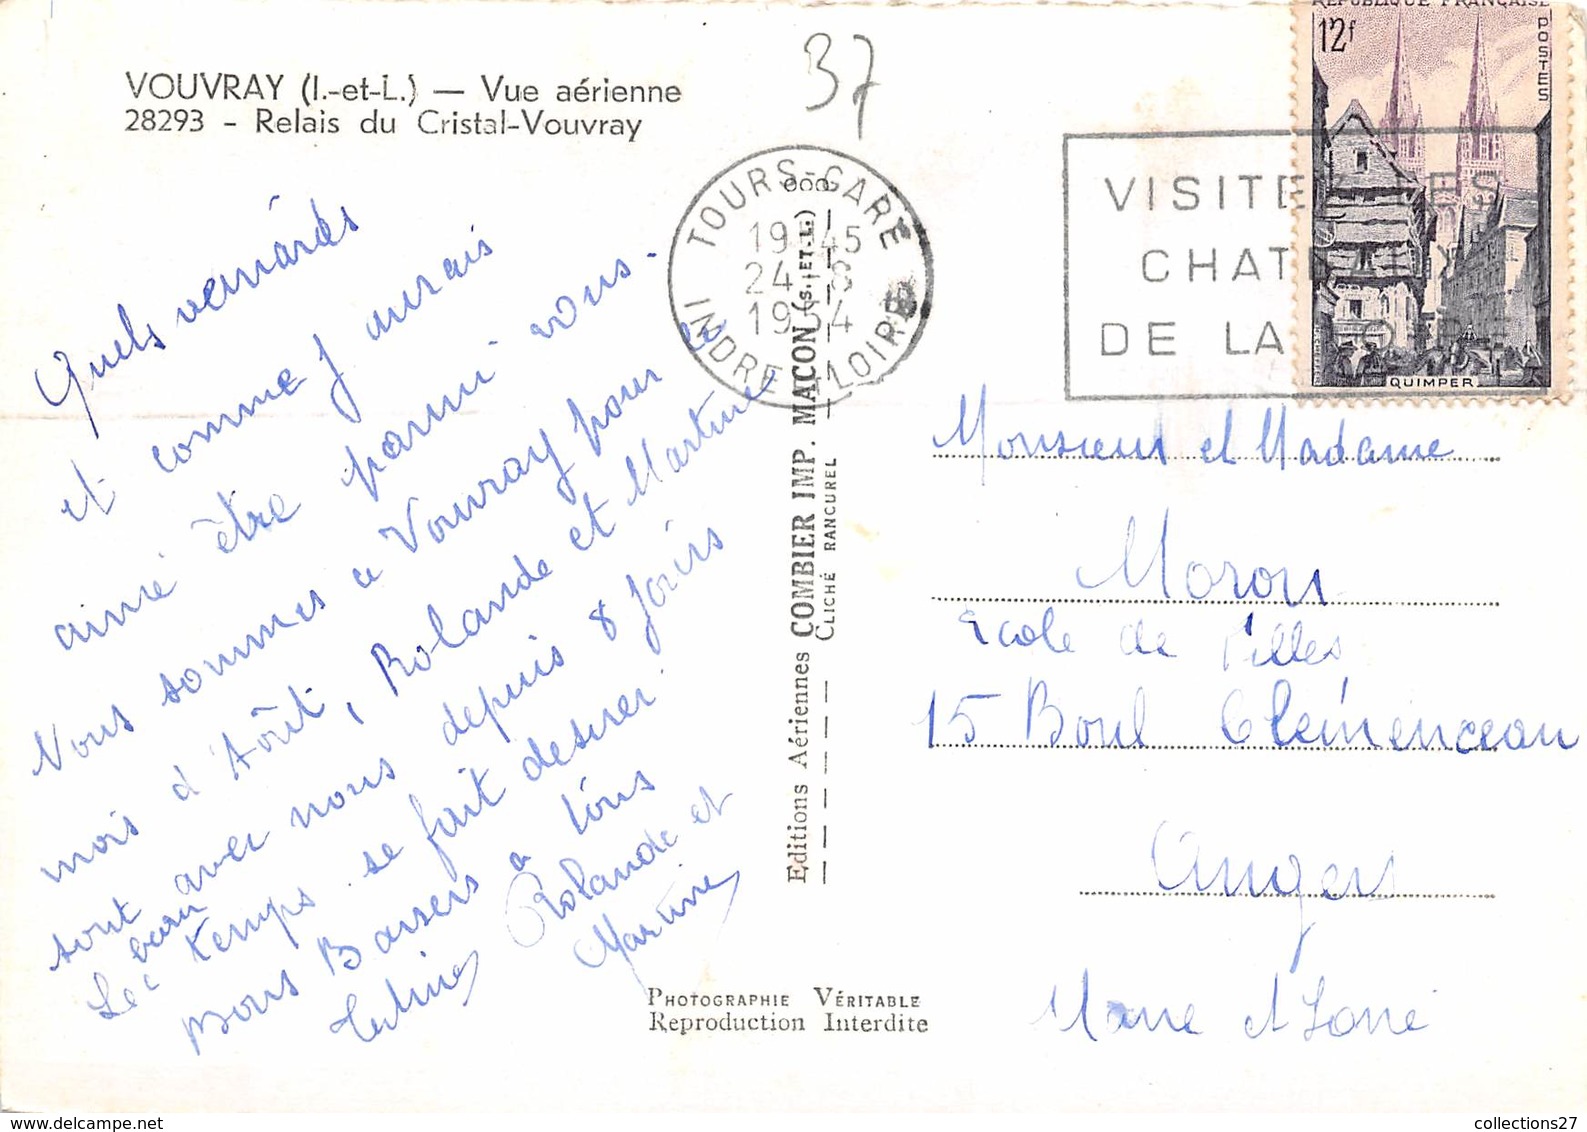 VOUVRAY (I.-et-L.) — Vue aérienne
28293 - Relais du Cristal-Vouvray
37
Quels veinards
et comme j'aurais
aimé être parmi vous.
Nous sommes a Vouvray pour le
mois d'Août, Rolande et Martine
sont avec nous depuis 8 jours
Le beau temps se fait desirer.
Bons Baisers a tous
Rolande et
Martine
TOURS-GARE
19 45
24 - 8
1954
INDRE LOIRE
VISITEZ LES
CHATEAUX
DE LA LOIRE
REPUBLIQUE FRANÇAISE
12f
POSTES
QUIMPER
Editions Aériennes COMBIER IMP. MACON (S.-ET-L.)
CLICHÉ RANCUREL
Monsieur et Madame
Moron
Ecole de Filles
15 Boul Clemenceau
Angers
Maine et Loire
PHOTOGRAPHIE VÉRITABLE
Reproduction Interdite
collections27